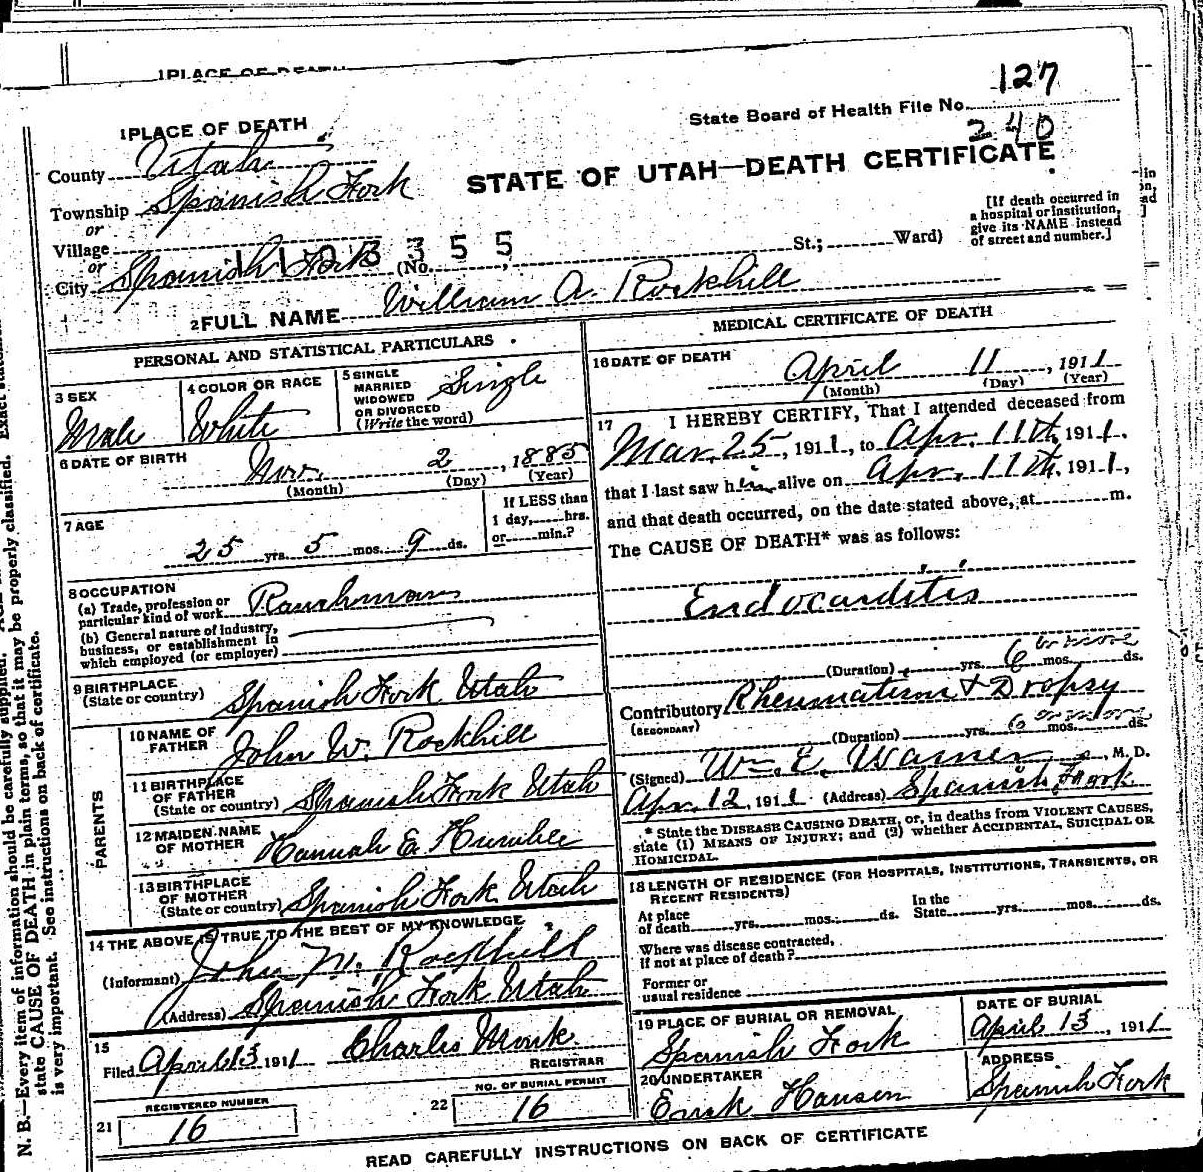 1 PLACE OF DEATH
127
State Board of Health File No.
240
1 PLACE OF DEATH
County Utah
STATE OF UTAH—DEATH CERTIFICATE
Township Spanish Fork
or
Village
or
City Spanish Fork (No. St.; Ward)
1103355
[If death occurred in
a hospital or institution,
give its NAME instead
of street and number.]
2 FULL NAME William A. Rockhill
PERSONAL AND STATISTICAL PARTICULARS
3 SEX
Male
4 COLOR OR RACE
White
5 SINGLE
MARRIED
WIDOWED
OR DIVORCED
(Write the word)
Single
6 DATE OF BIRTH
Nov. 2, 1885
(Month) (Day) (Year)
7 AGE
25 yrs. 5 mos. 9 ds.
If LESS than
1 day, hrs.
or min.?
8 OCCUPATION
(a) Trade, profession or
particular kind of work Ranchman
(b) General nature of industry,
business, or establishment in
which employed (or employer)
9 BIRTHPLACE
(State or country) Spanish Fork Utah
PARENTS
10 NAME OF
FATHER John W. Rockhill
11 BIRTHPLACE
OF FATHER
(State or country) Spanish Fork Utah
12 MAIDEN NAME
OF MOTHER Hannah E
13 BIRTHPLACE
OF MOTHER
(State or country) Spanish Fork Utah
14 THE ABOVE IS TRUE TO THE BEST OF MY KNOWLEDGE
(Informant) John M. Rockhill
(Address) Spanish Fork Utah
15
Filed April 13 1911 Charles Monk
REGISTRAR
REGISTERED NUMBER
21 16
NO. OF BURIAL PERMIT
22 16
MEDICAL CERTIFICATE OF DEATH
16 DATE OF DEATH
April 11, 1911
(Month) (Day) (Year)
17 I HEREBY CERTIFY, That I attended deceased from
Mar. 25, 1911, to Apr. 11th, 1911,
that I last saw him alive on Apr. 11th, 1911,
and that death occurred, on the date stated above, at m.
The CAUSE OF DEATH* was as follows:
Endocarditis
(Duration) yrs. 6 or more mos. ds.
Contributory Rheumatism & Dropsy
(SECONDARY)
(Duration) yrs. 6 or more mos. ds.
(Signed) Wm. E. Warner, M. D.
Apr. 12, 1911 (Address) Spanish Fork
* State the DISEASE CAUSING DEATH, or, in deaths from VIOLENT CAUSES,
state (1) MEANS OF INJURY; and (2) whether ACCIDENTAL, SUICIDAL OR
HOMICIDAL.
18 LENGTH OF RESIDENCE (FOR HOSPITALS, INSTITUTIONS, TRANSIENTS, OR
RECENT RESIDENTS)
At place
of death yrs. mos. ds.
In the
State yrs. mos. ds.
Where was disease contracted,
if not at place of death?
Former or
usual residence
19 PLACE OF BURIAL OR REMOVAL
Spanish Fork
DATE OF BURIAL
April 13, 1911
20 UNDERTAKER
Hansen
ADDRESS
Spanish Fork
READ CAREFULLY INSTRUCTIONS ON BACK OF CERTIFICATE
N. B.—Every item of information should be carefully supplied.
state CAUSE OF DEATH in plain terms, so that it may be properly classified. Exact
is very important. See instructions on back of certificate.